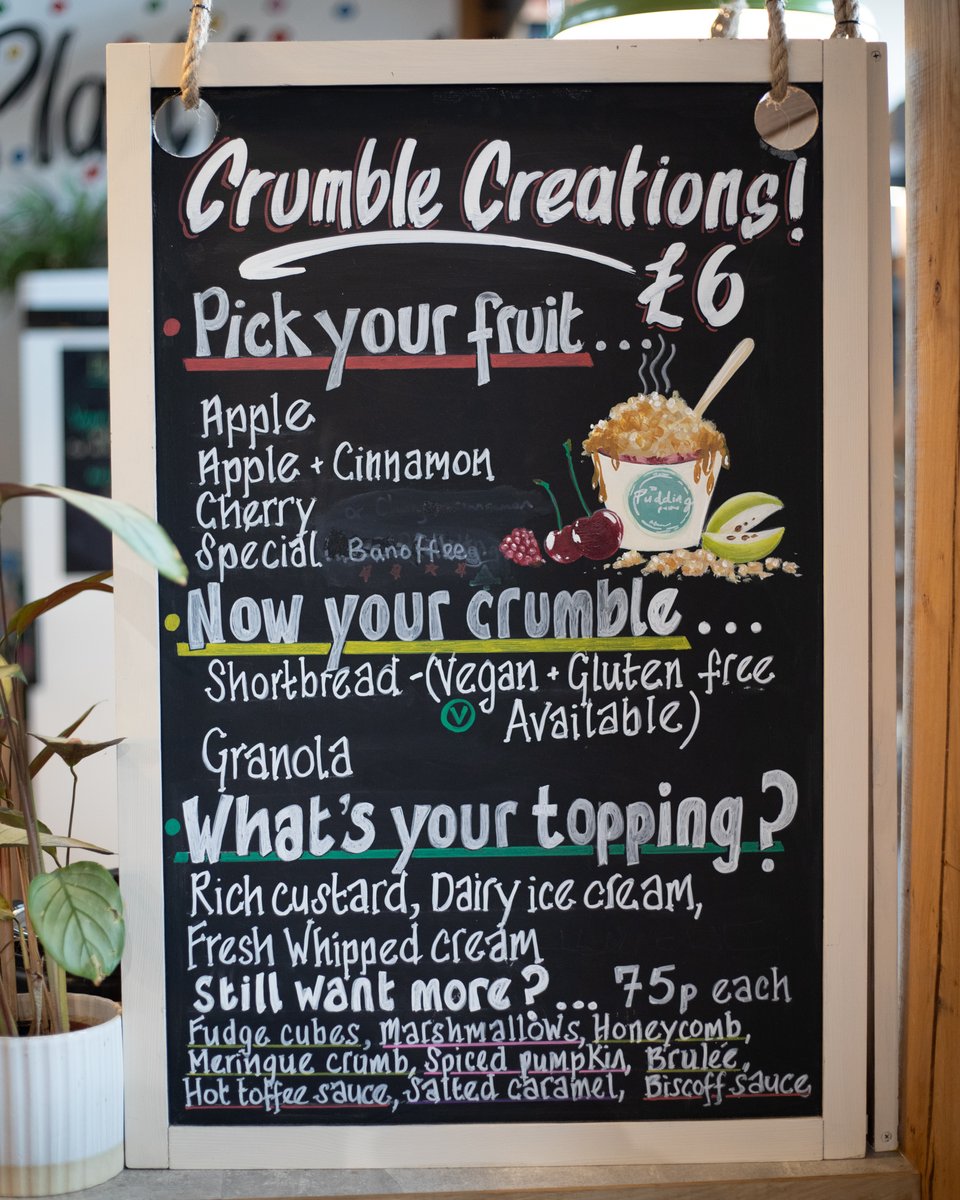 Play
Crumble Creations!
£6
Pick your fruit...
Apple
Apple + Cinnamon
Cherry
Special Banoffee
The
Pudding
Now your crumble...
Shortbread - (Vegan + Gluten free
V Available)
Granola
What's your topping?
Rich custard, Dairy ice cream,
Fresh Whipped cream
Still want more?... 75p each
Fudge cubes, Marshmallows, Honeycomb,
Meringue crumb, Spiced pumpkin, Brulée,
Hot toffee sauce, Salted caramel, Biscoff sauce